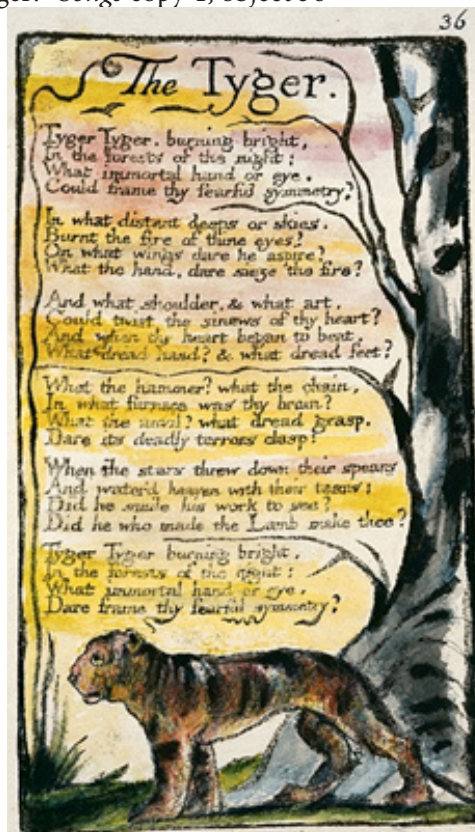 36
The Tyger.
Tyger Tyger, burning bright,
In the forests of the night:
What immortal hand or eye,
Could frame thy fearful symmetry?
In what distant deeps or skies.
Burnt the fire of thine eyes?
On what wings dare he aspire?
What the hand, dare sieze the fire?
And what shoulder, & what art,
Could twist the sinews of thy heart?
And when thy heart began to beat,
What dread hand? & what dread feet?
What the hammer? what the chain,
In what furnace was thy brain?
What the anvil? what dread grasp.
Dare its deadly terrors clasp!
When the stars threw down their spears
And water'd heaven with their tears:
Did he smile his work to see?
Did he who made the Lamb make thee?
Tyger Tyger burning bright,
In the forests of the night:
What immortal hand or eye,
Dare frame thy fearful symmetry?